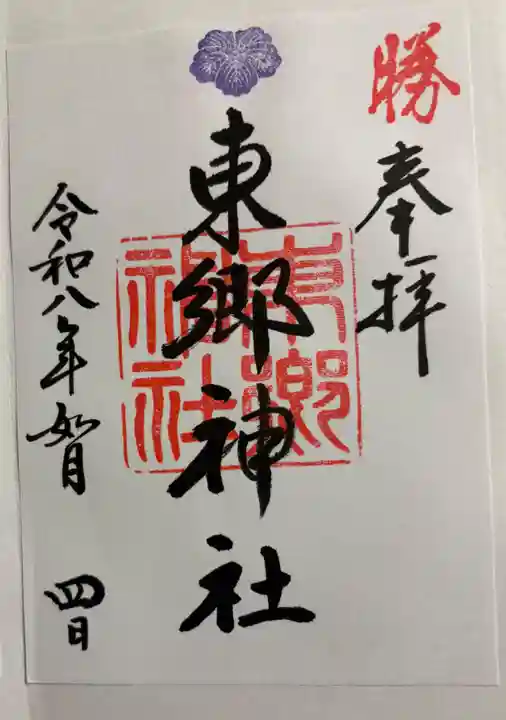 勝
奉拝
東郷神社
東郷神社
令和八年如月四日